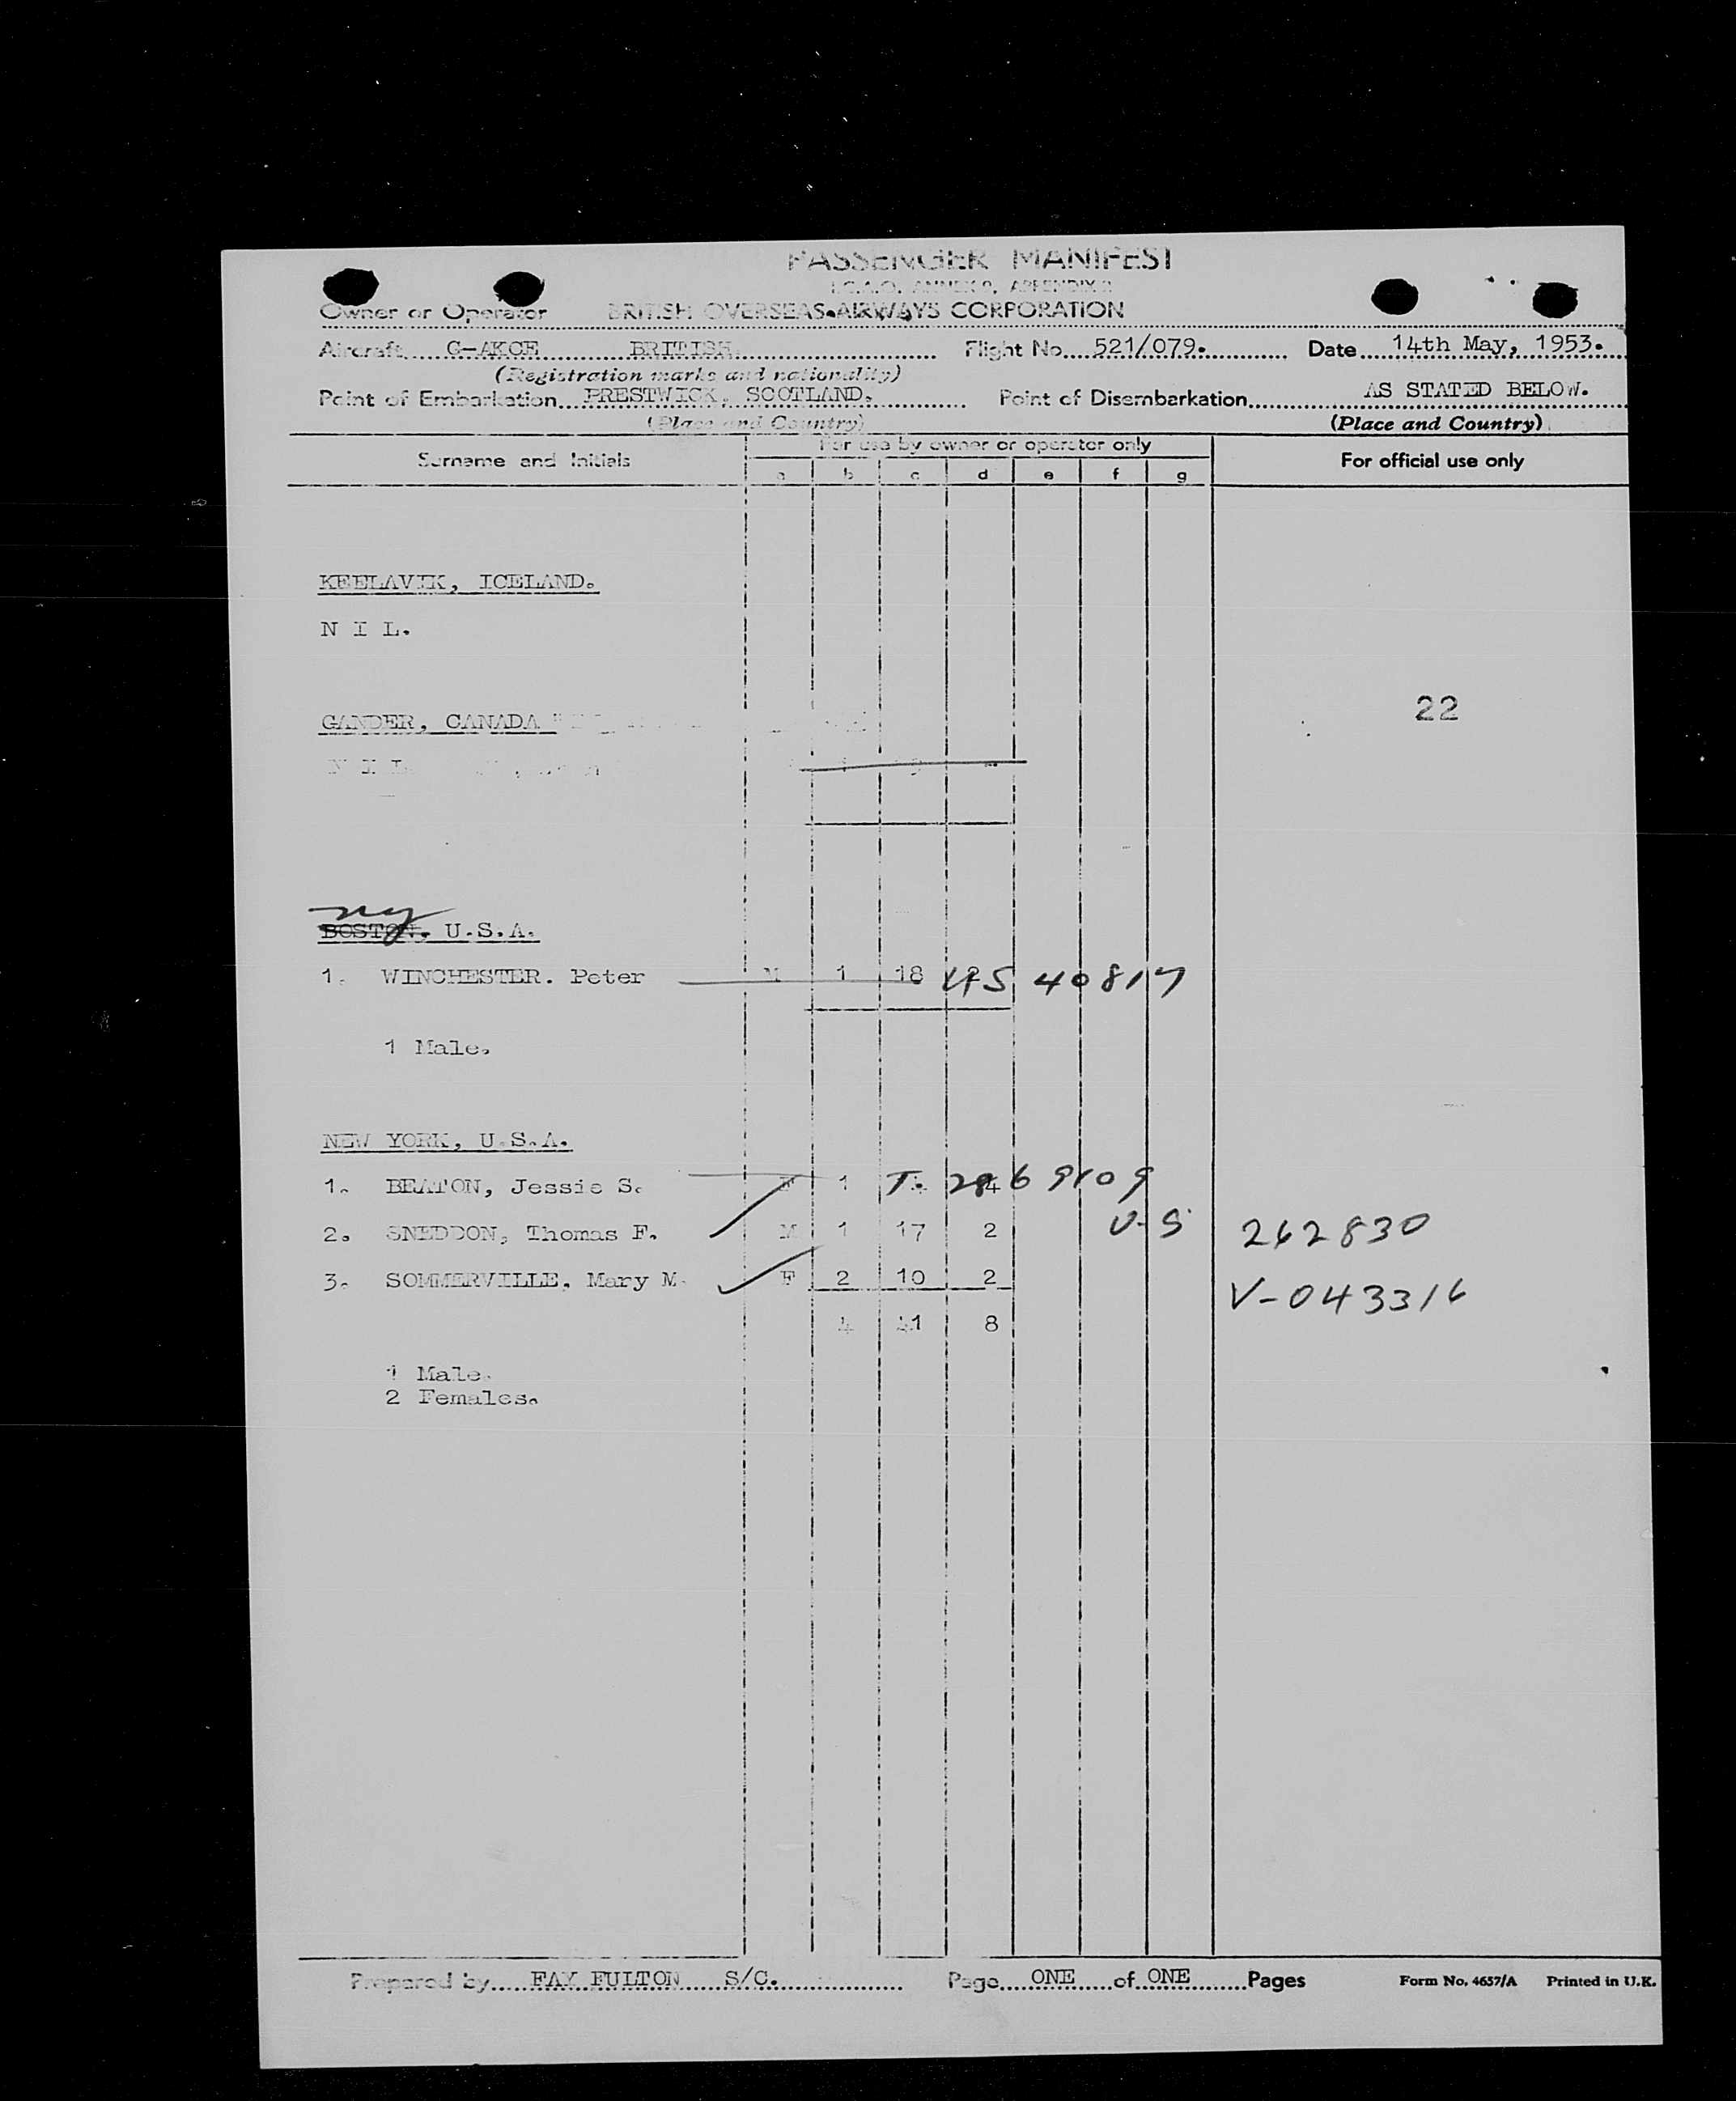 PASSENGER MANIFEST
I.C.A.O. ANNEX 9, APPENDIX 2
Owner or Operator BRITISH OVERSEAS AIRWAYS CORPORATION
Aircraft G-AKCE BRITISH. Flight No. 521/079. Date 14th May, 1953.
(Registration marks and nationality)
Point of Embarkation PRESTWICK, SCOTLAND. Point of Disembarkation AS STATED BELOW.
(Place and Country) (Place and Country)
Surname and Initials For use by owner or operator only For official use only
a b c d e f g
KEFLAVIK, ICELAND.
N I L.
22
GANDER, CANADA
N I L
ny
BOSTON, U.S.A.
1. WINCHESTER. Peter M 1 18 US 40817
1 Male.
NEW YORK, U.S.A.
1. BEATON, Jessie S. F 1 T. 2869109
2. SNEDDON, Thomas F. M 1 17 2 U-S 262830
3. SOMMERVILLE, Mary M. F 2 10 2 V-043316
4 41 8
1 Male.
2 Females.
Prepared by FAY FULTON S/C. Page ONE of ONE Pages Form No. 4657/A Printed in U.K.